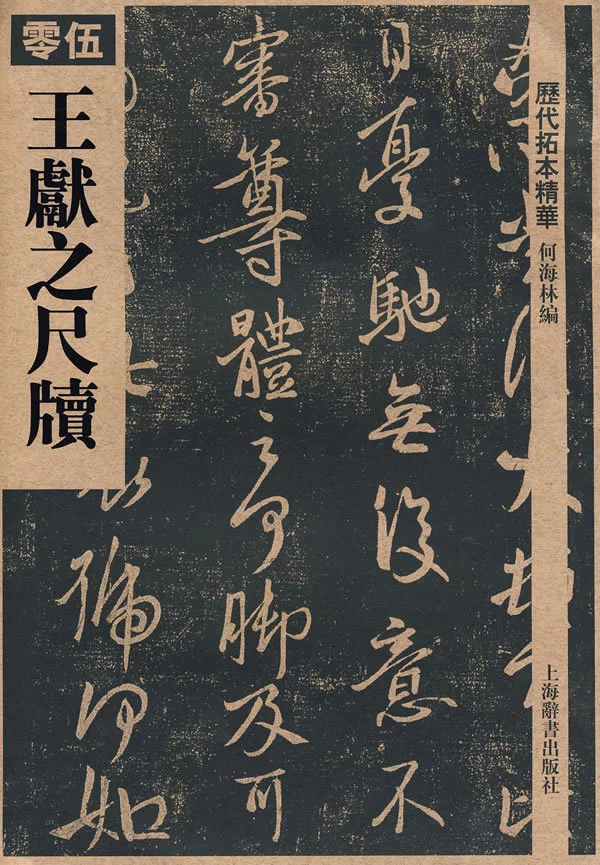 零伍
王獻之尺牘
歷代拓本精華
何海林編
上海辭書出版社
日憂馳無復意不
審尊體云何腳及可
何如